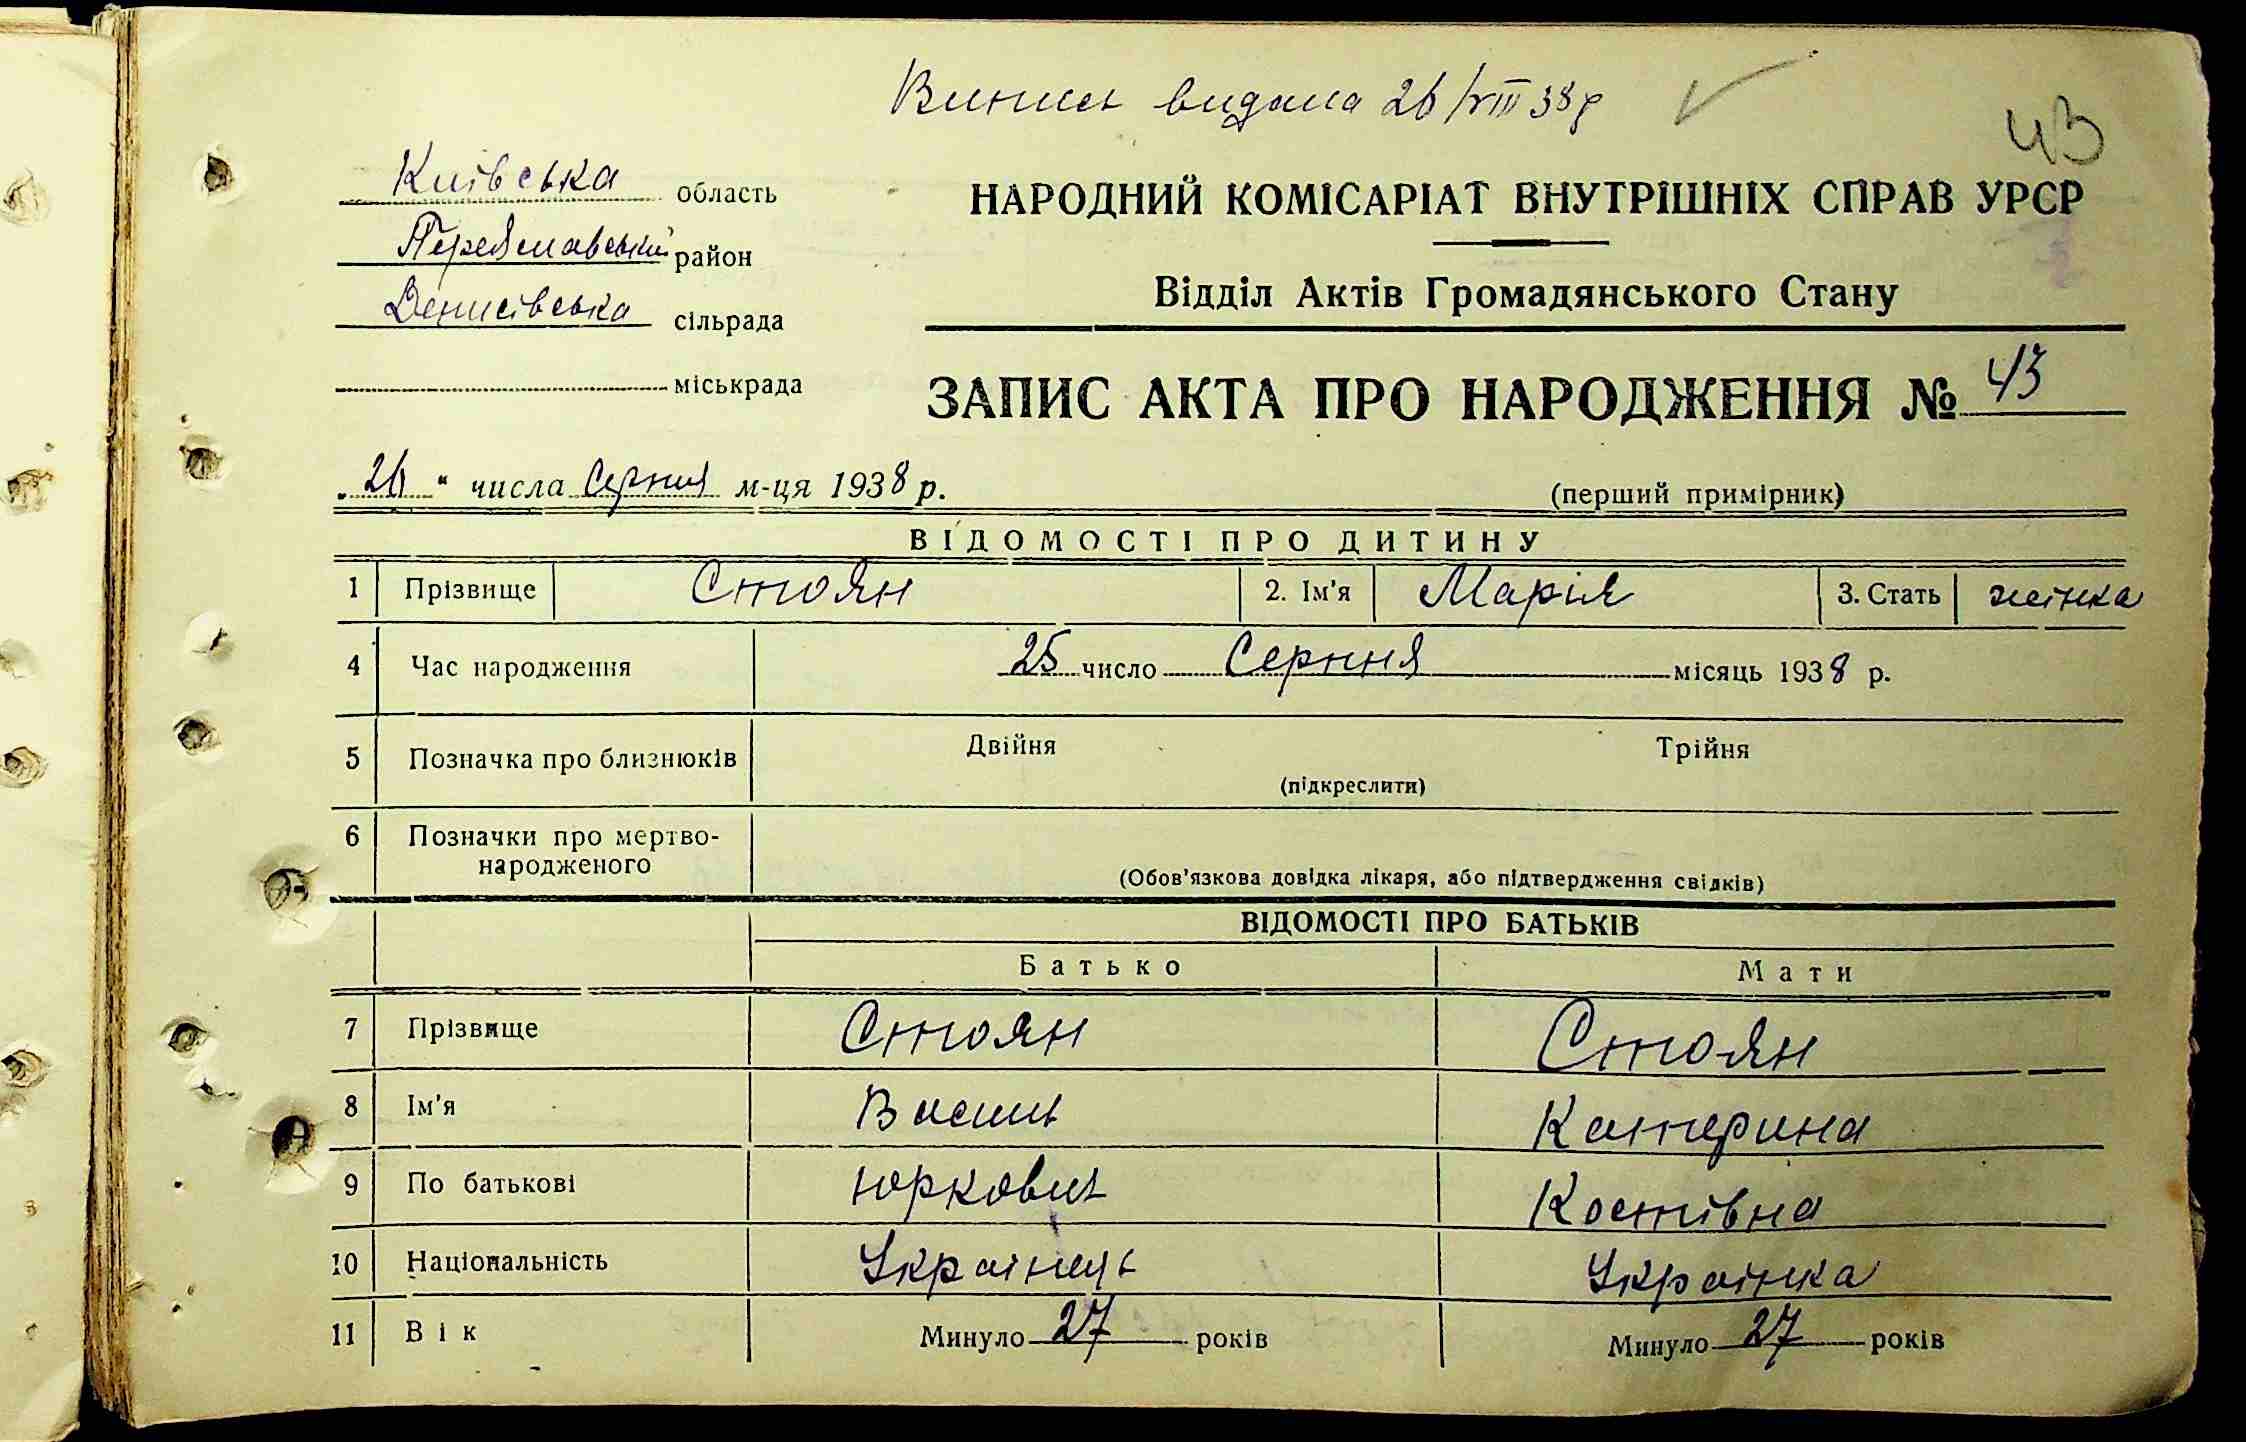 Випись видана 26/VIII 38р
43
Київська область
Переяславський район
Денисівська сільрада
міськрада
НАРОДНИЙ КОМІСАРІАТ ВНУТРІШНІХ СПРАВ УРСР
Відділ Актів Громадянського Стану
ЗАПИС АКТА ПРО НАРОДЖЕННЯ № 43
„26" числа Серпня м-ця 1938 р.
(перший примірник)
ВІДОМОСТІ ПРО ДИТИНУ
1 Прізвище Стоян 2. Ім'я Марія 3. Стать жінка
4 Час народження 25 число Серпня місяць 1938 р.
5 Позначка про близнюків Двійня Трійня
(підкреслити)
6 Позначки про мертво-
народженого
(Обов'язкова довідка лікаря, або підтвердження свідків)
ВІДОМОСТІ ПРО БАТЬКІВ
Батько Мати
7 Прізвище Стоян Стоян
8 Ім'я Василь Катерина
9 По батькові Юркович Костівна
10 Національність Українець Українка
11 Вік Минуло 27 років Минуло 27 років